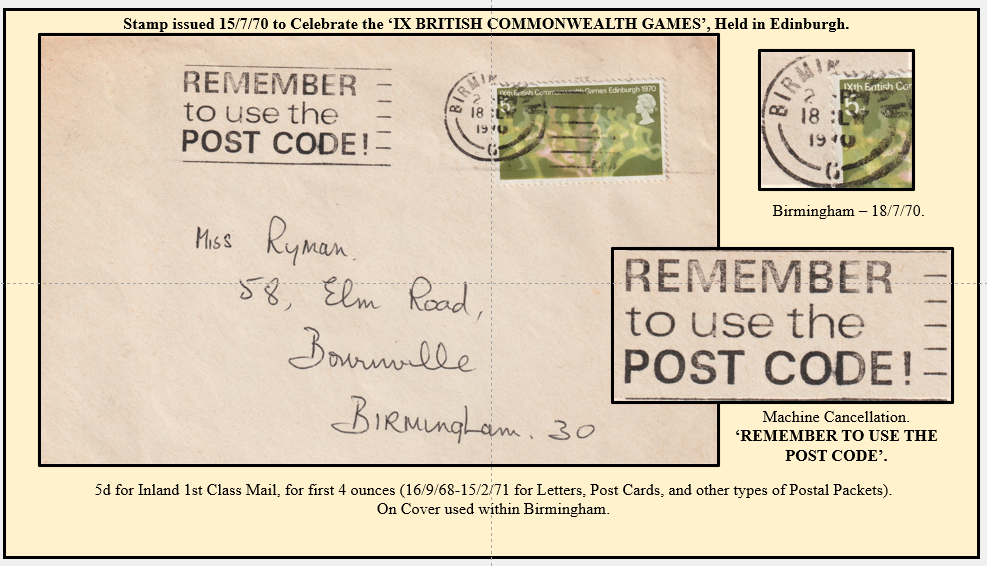 Stamp issued 15/7/70 to Celebrate the ‘IX BRITISH COMMONWEALTH GAMES’, Held in Edinburgh.
REMEMBER
to use the
POST CODE!
BIRMIN
18
1970
6
IXth British Commonwealth Games Edinburgh 1970
5d
Miss Ryman.
58, Elm Road,
Bournville
BIRMINGHAM. 30
BIRMIN
18
1970
6
IXth British Co
5d
Birmingham – 18/7/70.
REMEMBER
to use the
POST CODE!
Machine Cancellation.
‘REMEMBER TO USE THE
POST CODE’.
5d for Inland 1st Class Mail, for first 4 ounces (16/9/68-15/2/71 for Letters, Post Cards, and other types of Postal Packets).
On Cover used within Birmingham.